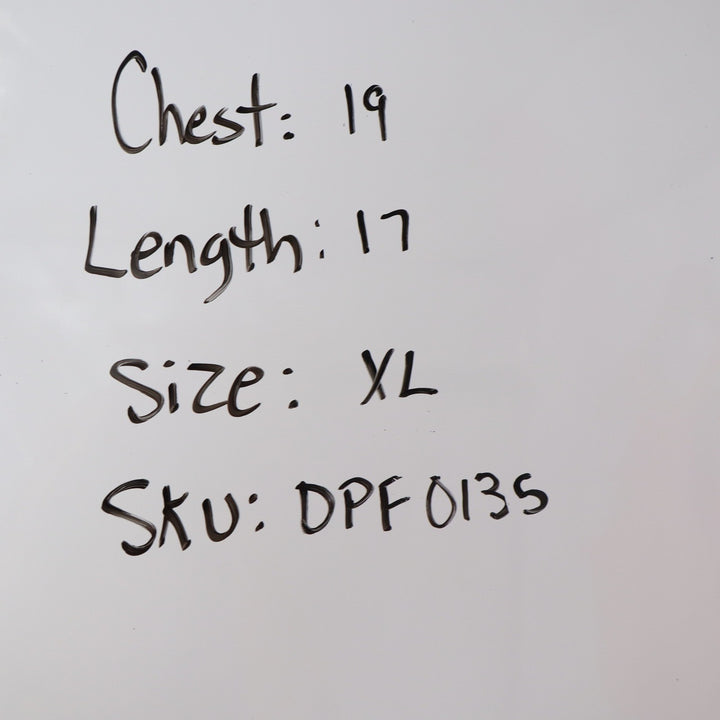 Chest: 19
Length: 17
Size: XL
SKU: DPF0135